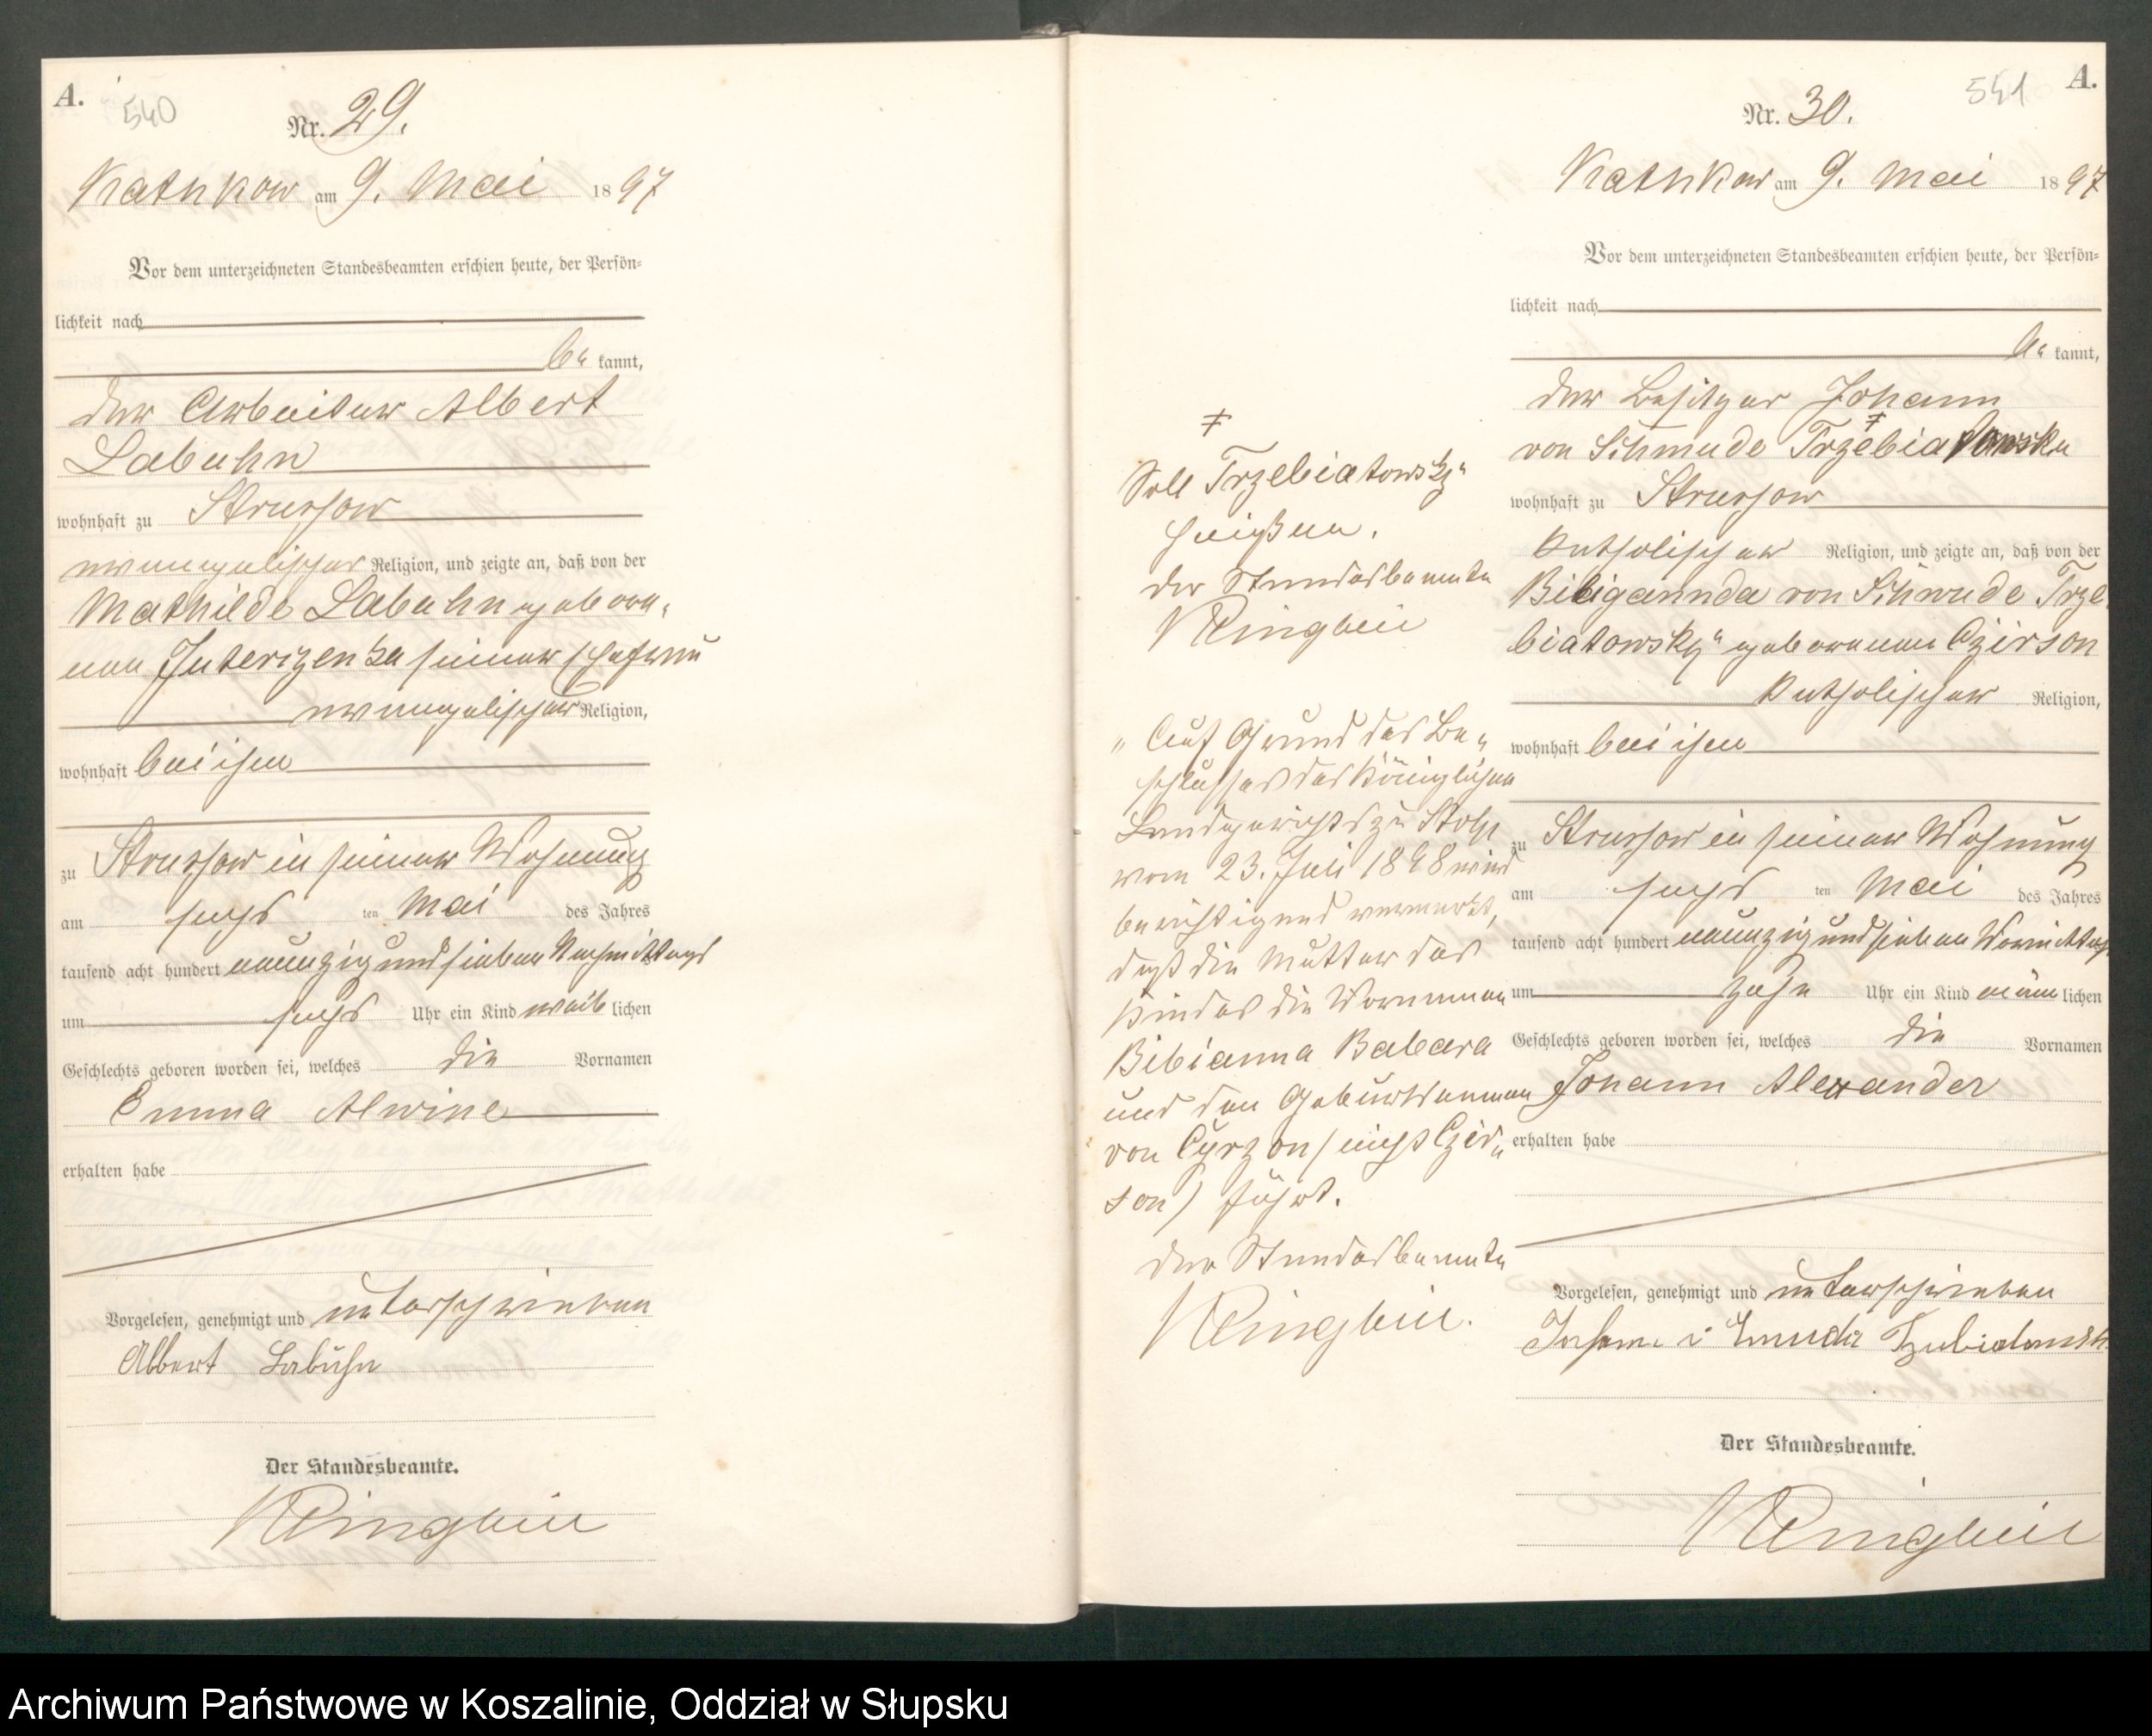 A.
540
Nr. 29.
Kathkow am 9. Mai 1897
Vor dem unterzeichneten Standesbeamten erschien heute, der Persön-
lichkeit nach
be kannt,
der Arbeiter Albert
Labuhn
wohnhaft zu Strussow
evangelischer Religion, und zeigte an, daß von der
Mathilde Labuhn gebore-
nen seiner Ehefrau
evangelischer Religion,
wohnhaft bei ihm
zu Strussow in seiner Wohnung
am sechs ten Mai des Jahres
tausend acht hundert neunzig und sieben Nachmittags
um sechs Uhr ein Kind weib lichen
Geschlechts geboren worden sei, welches die Vornamen
Emma Alwine
erhalten habe
Vorgelesen, genehmigt und unterschrieben
Albert Labuhn
Der Standesbeamte.
‡
Soll Trzebiatowsky
heißen.
der Standesbeamte
"Auf Grund des Be-
schlusses des Königlichen
Landgerichts zu Stolp
vom 23. Juli 1898 wird
berichtigend vermerkt,
daß die Mutter des
Kindes die Vornamen
Bibianna Babara
und den Geburtsnamen
von Cyrzon (nicht Czir-
son) führt.
Der Standesbeamte
541
A.
Nr. 30.
Kathkow am 9. Mai 1897
Vor dem unterzeichneten Standesbeamten erschien heute, der Persön-
lichkeit nach
be kannt,
der Besitzer Johann
von Schmude ‡
wohnhaft zu Strussow
katholischer Religion, und zeigte an, daß von der
von Schmude Trze-
biatowsky geborenen Czirson
katholischer Religion,
wohnhaft bei ihm
zu Strussow in seiner Wohnung
am sechs ten Mai des Jahres
tausend acht hundert neunzig und sieben Vormittags
um zehn Uhr ein Kind männ lichen
Geschlechts geboren worden sei, welches die Vornamen
Johann Alexander
erhalten habe
Vorgelesen, genehmigt und unterschrieben
Der Standesbeamte.
Archiwum Państwowe w Koszalinie, Oddział w Słupsku